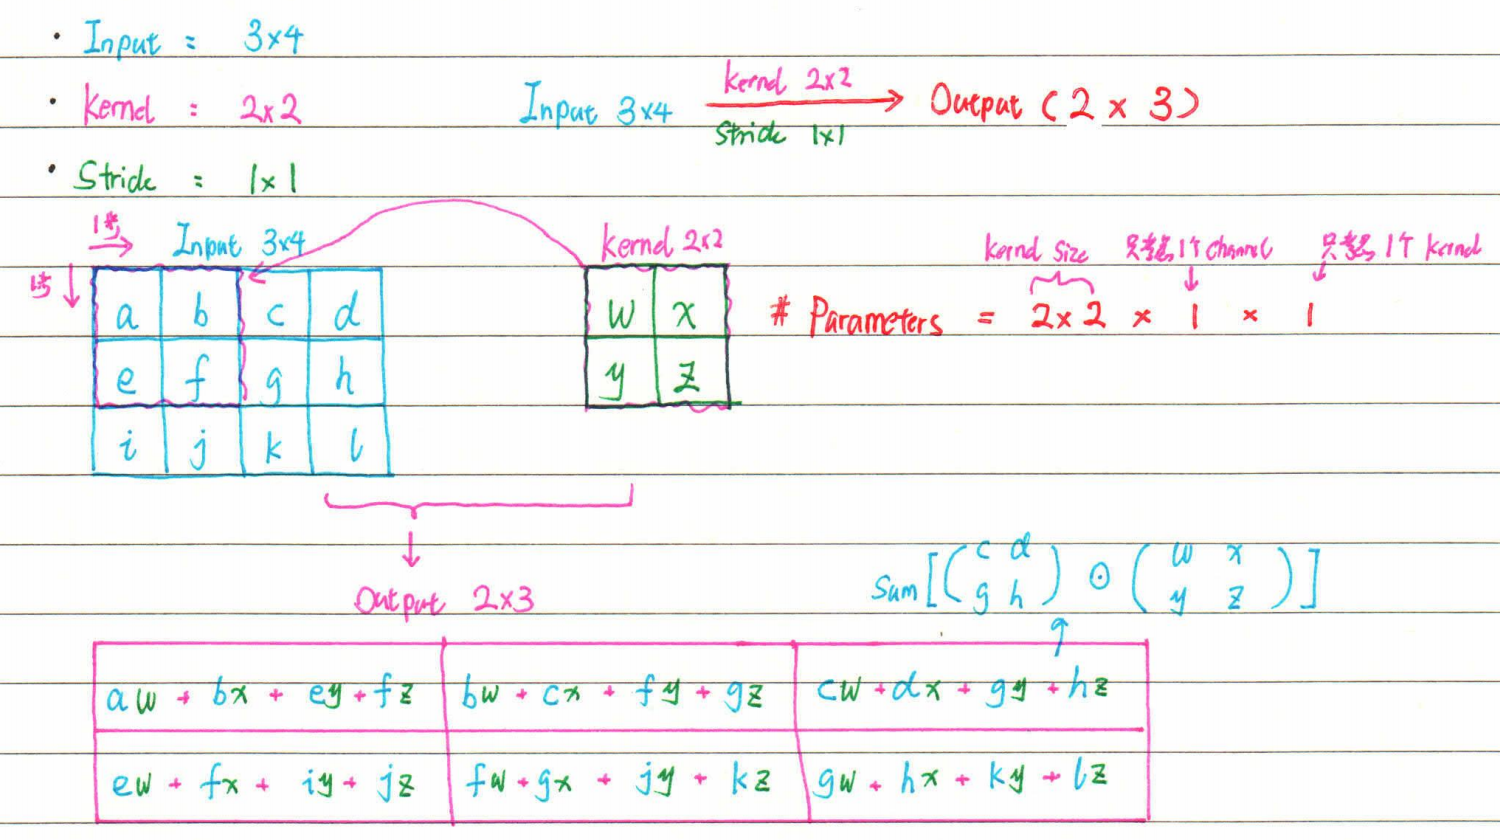 • Input : 3×4
• Kernel : 2×2
• Stride : 1×1
Input 3×4
Kernel 2×2
Stride 1×1
Output (2 × 3)
1步
1步
Input 3×4
a b c d
e f g h
i j k l
Kernel 2×2
w x
y z
Kernel Size
只考虑1个Channel
只考虑1个Kernel
# Parameters = 2×2 × 1 × 1
Output 2×3
Sum[(c d
g h) ⊙ (w x
y z)]
aw + bx + ey + fz
bw + cx + fy + gz
cw + dx + gy + hz
ew + fx + iy + jz
fw + gx + jy + kz
gw + hx + ky + lz